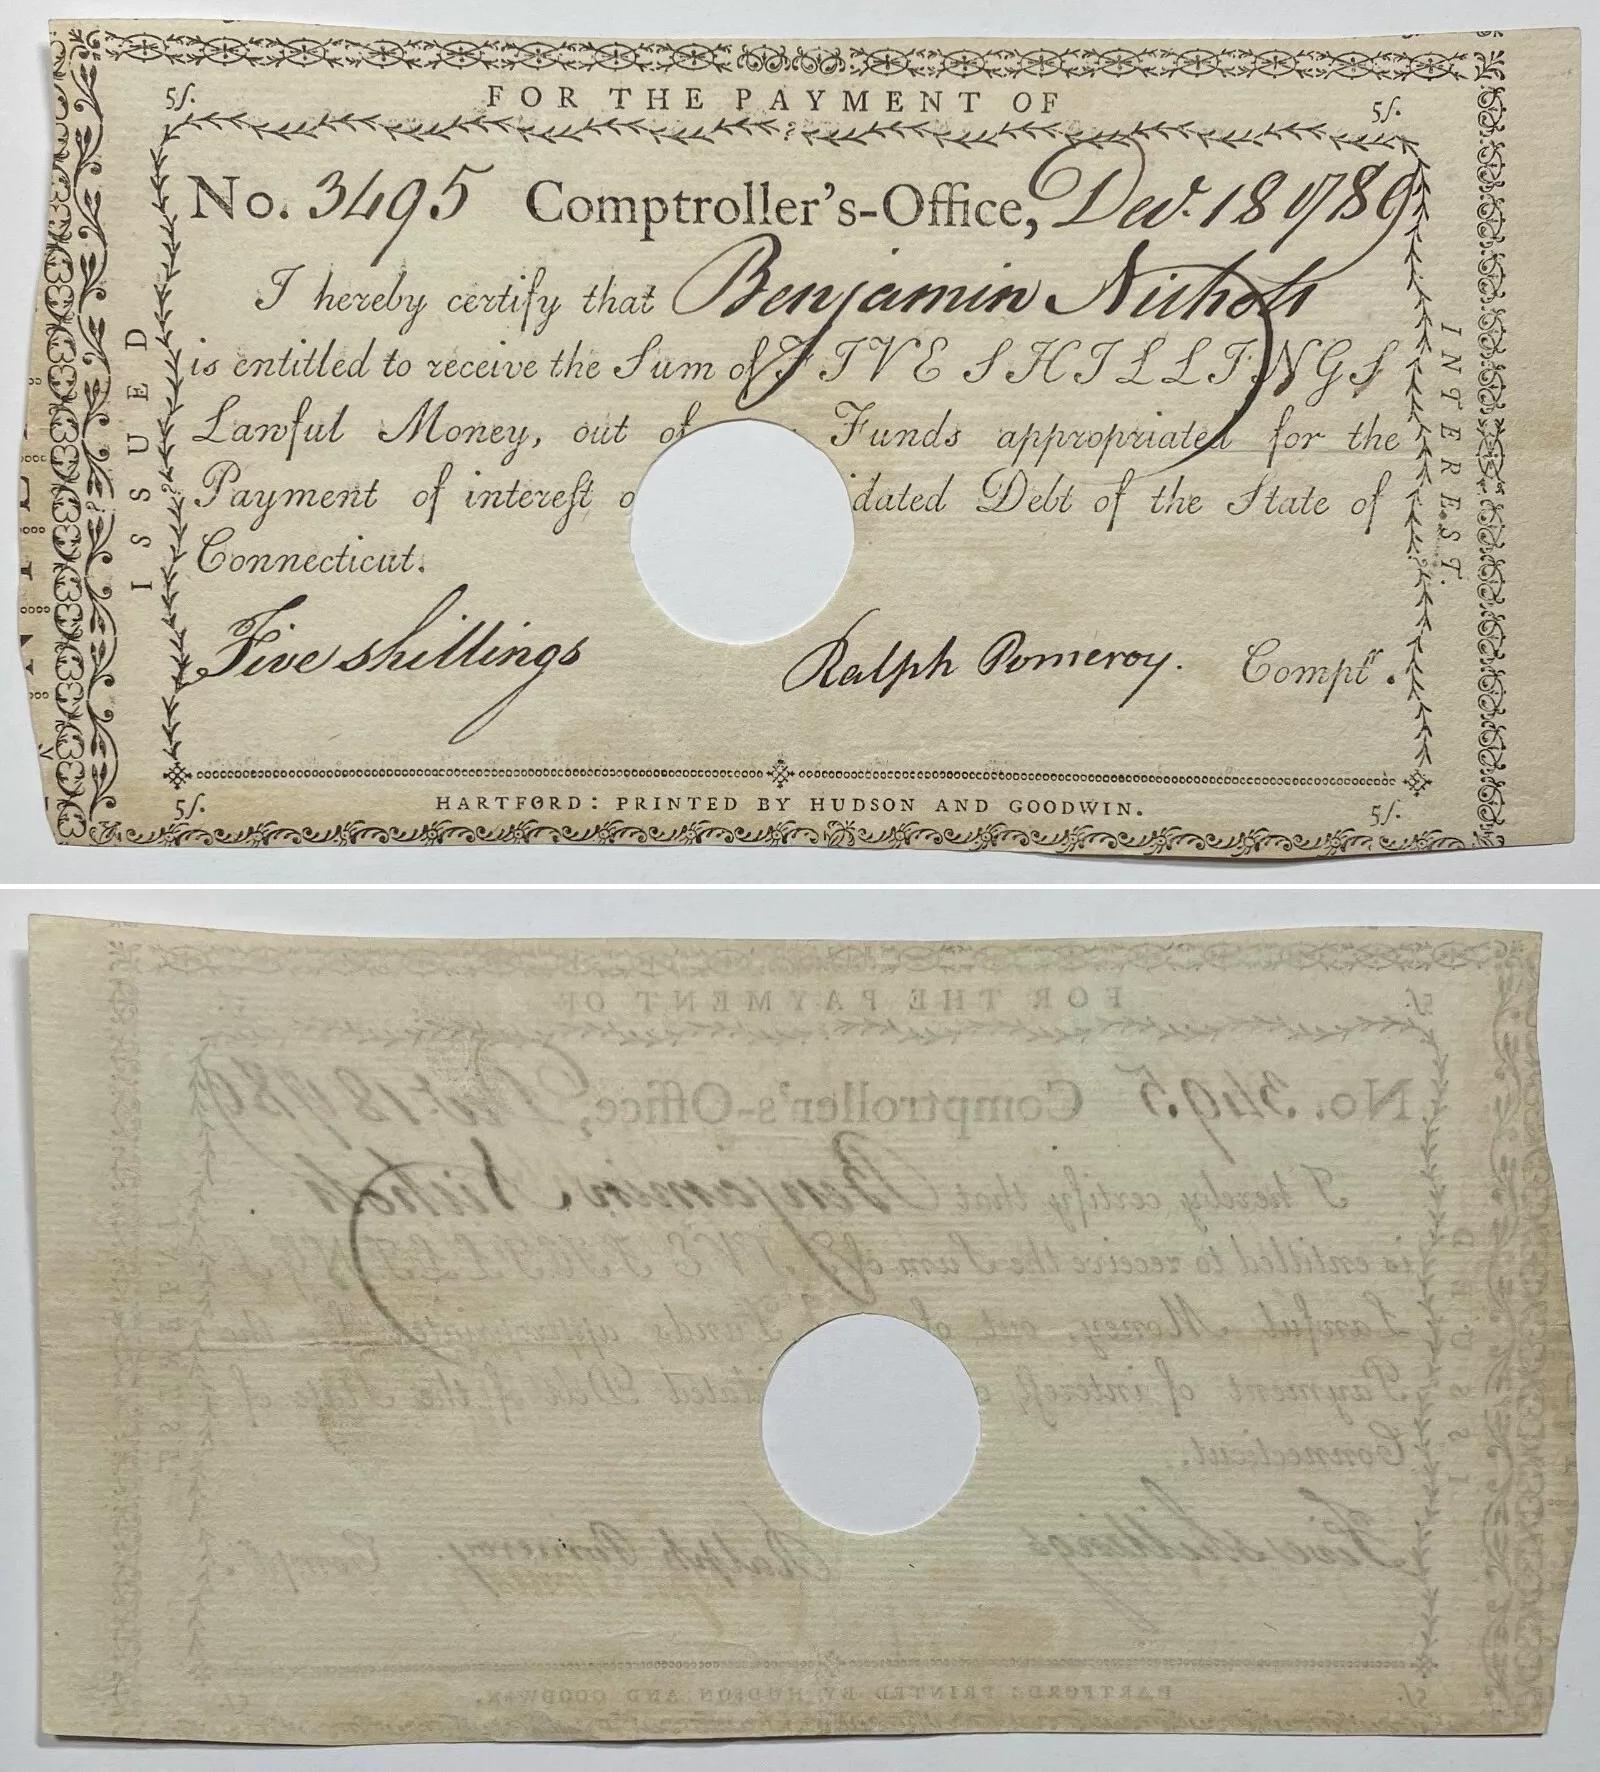 5ſ. FOR THE PAYMENT OF 5ſ.
No. 3495 Comptroller's-Office, Decr. 18 1789
I hereby certify that Benjamin Nichols
is entitled to receive the Sum of FIVE SHILLINGS
Lawful Money, out of Funds appropriated for the
Payment of intereſt o dated Debt of the State of
Connecticut.
Five shillings Ralph Pomeroy. Comptr.
ISSUED
INTEREST.
5ſ. HARTFORD: PRINTED BY HUDSON AND GOODWIN. 5ſ.